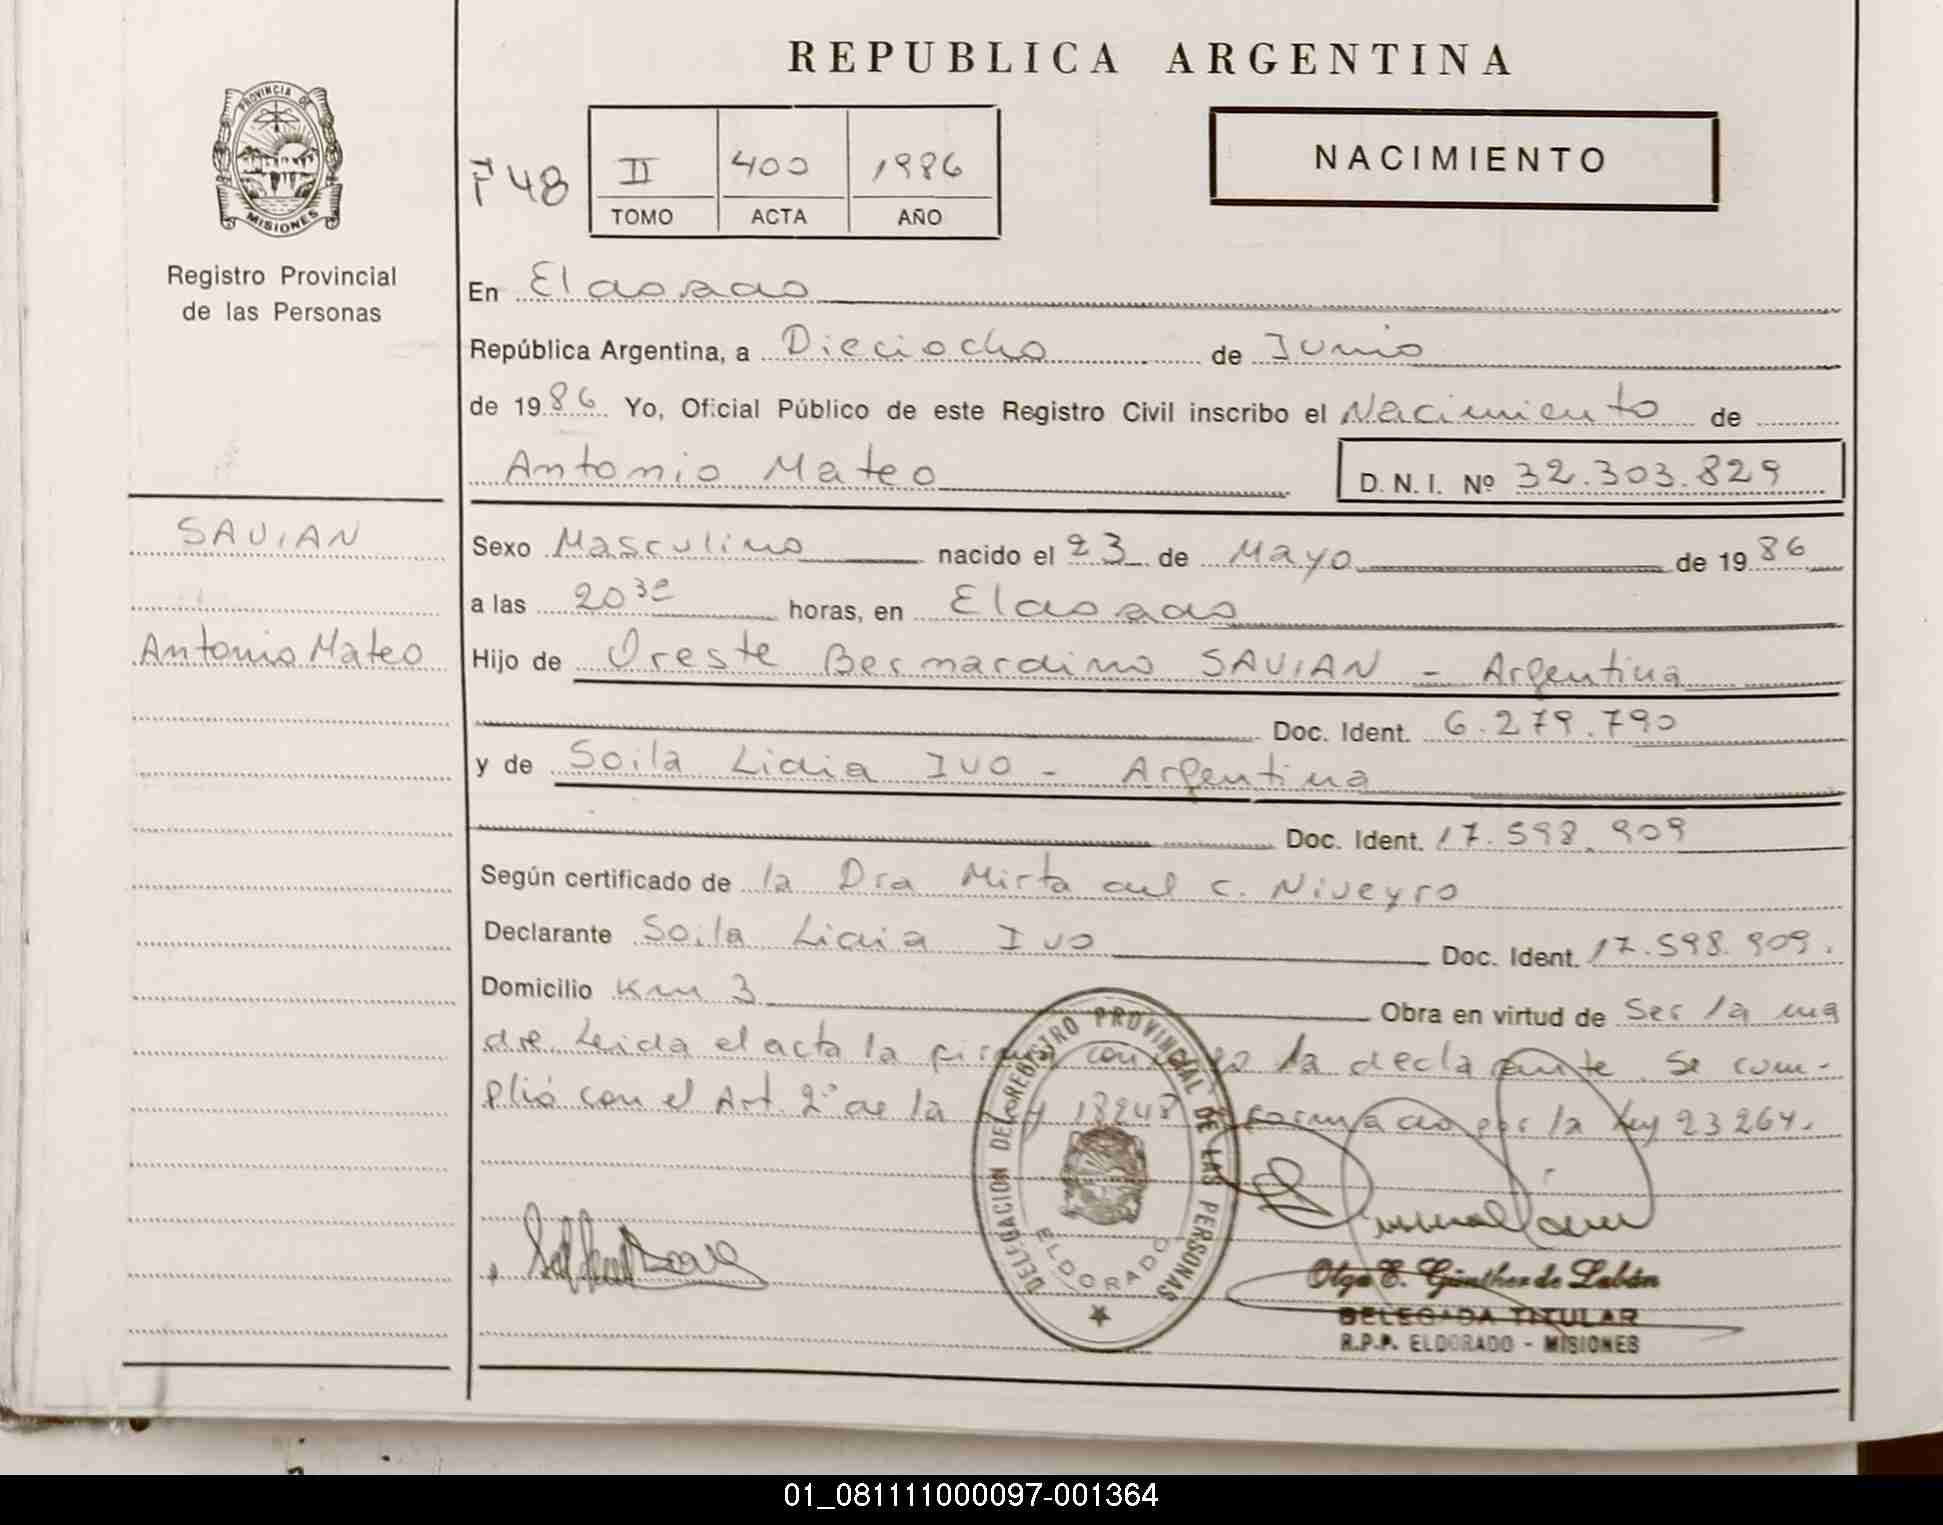 REPUBLICA ARGENTINA
PROVINCIA DE
MISIONES
Registro Provincial
de las Personas
F48
II 400 1986
TOMO ACTA AÑO
NACIMIENTO
En Eldorado
República Argentina, a Dieciocho de Junio
de 1986 Yo, Oficial Público de este Registro Civil inscribo el Nacimiento de
Antonio Mateo D.N.I. Nº 32.303.829
SAVIAN
Antonio Mateo
Sexo Masculino nacido el 23 de Mayo de 1986
a las 20 30 horas, en Eldorado
Hijo de Oreste Bernardino SAVIAN - Argentina
Doc. Ident. 6.279.790
y de Soila Lidia IVO - Argentina
Doc. Ident. 17.598.909
Según certificado de la Dra Mirta del C. Niveyro
Declarante Soila Lidia Ivo Doc. Ident. 17.598.909.
Domicilio Km 3 Obra en virtud de Ser la ma
dre Leida el acta la firma conmigo la declarante. Se cum-
plió con el Art. 2º de la Ley 18248 reformado por la Ley 23264.
DELEGACION DEL REGISTRO PROVINCIAL DE LAS PERSONAS
ELDORADO
Olga E. Günther de Labán
DELEGADA TITULAR
R.P.P. ELDORADO - MISIONES
01_081111000097-001364